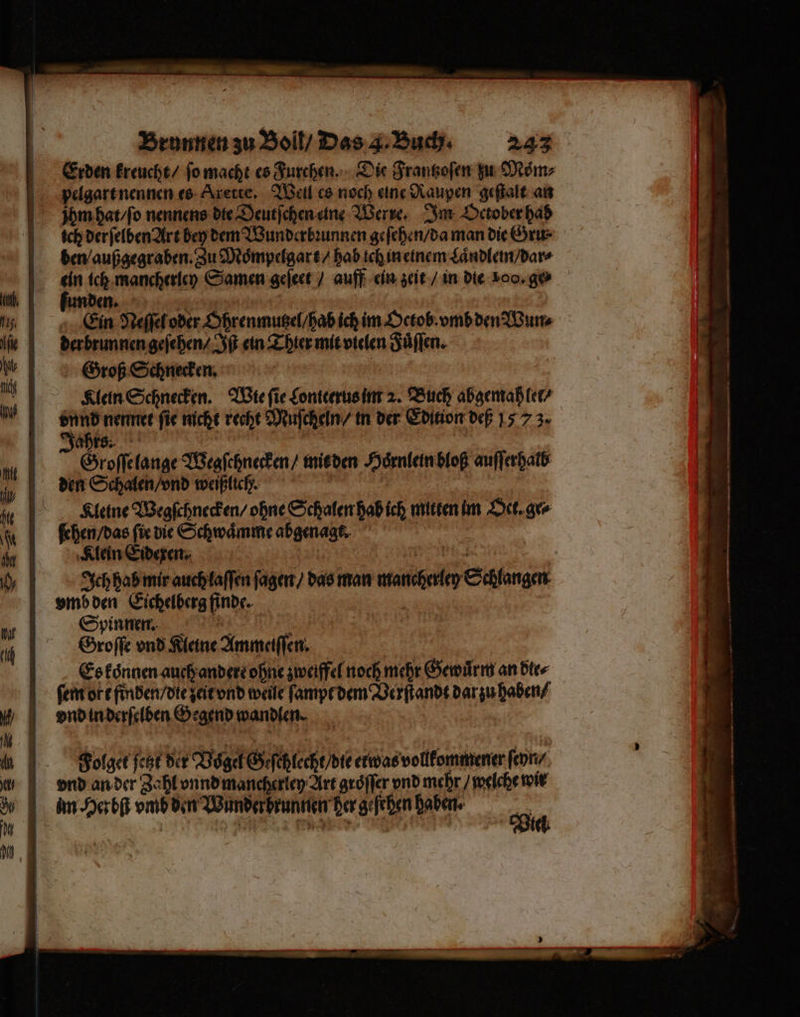 Brunnen zu Boll/ Das 4. Buch. 243
Erden kreucht/ ſo macht es Furchen. Die Frantzoſen zu Moͤm⸗
pelgart nennen es Arette. Weil es noch eine Raupen geſtalt an
jhm hat/ſo nennens die Deutſchen eine Werre. Im October hab
ich der ſelben Art bey dem Wunderbꝛunnen geſehen/da man die Gru⸗
ben/außgegraben. Zu Moͤmpelgart/ hab ich in einem Laͤndlein/dar⸗
ein ich mancherley Samen geſeet / auff ein zeit / in die 100. ge⸗
funden.
Ein Neſſel oder Ohrenmutzel/hab ich im Octob. vmb den Wun⸗
derbrunnen geſehen/ Iſt ein Thier mit vielen Fuͤſſen.
Groß Schnecken.
Klein Schnecken. Wie ſie Lonicerus im 2. Buch abgemahlet/
vnnd nennet ſie nicht recht Muſcheln/ in der Edition deß 1573.
Jahrs.
Groſſe lange Wegſchnecken/ mit den Hoͤrnlein bloß auſſerhalb
den Schalen/vnd weißlich.
Kleine Wegſchnecken/ ohne Schalen hab ich mitten im Oct. ge⸗
ſehen/das ſie die Schwaͤmme abgenagt.
Klein Eidexen.
Ich hab mir auch laſſen ſagen/ das man mancherley Schlangen
vmb den Eichelberg finde.
Spinnen.
Groſſe vnd Kleine Ammeiſſen.
Es koͤnnen auch andere ohne zweiffel noch mehr Gewuͤrm an die⸗
ſem ort finden/die zeit vnd weile ſampt dem Verſtandt darzu haben/
vnd in derſelben Gegend wandlen.
Folget jetzt der Voͤgel Geſchlecht/die etwas vollkommener ſeyn/
vnd an der Zahl vnnd mancherley Art groͤſſer vnd mehr / welche wir
im Herbſt vmb den Wunderbrunnen her geſehen haben.
Viel